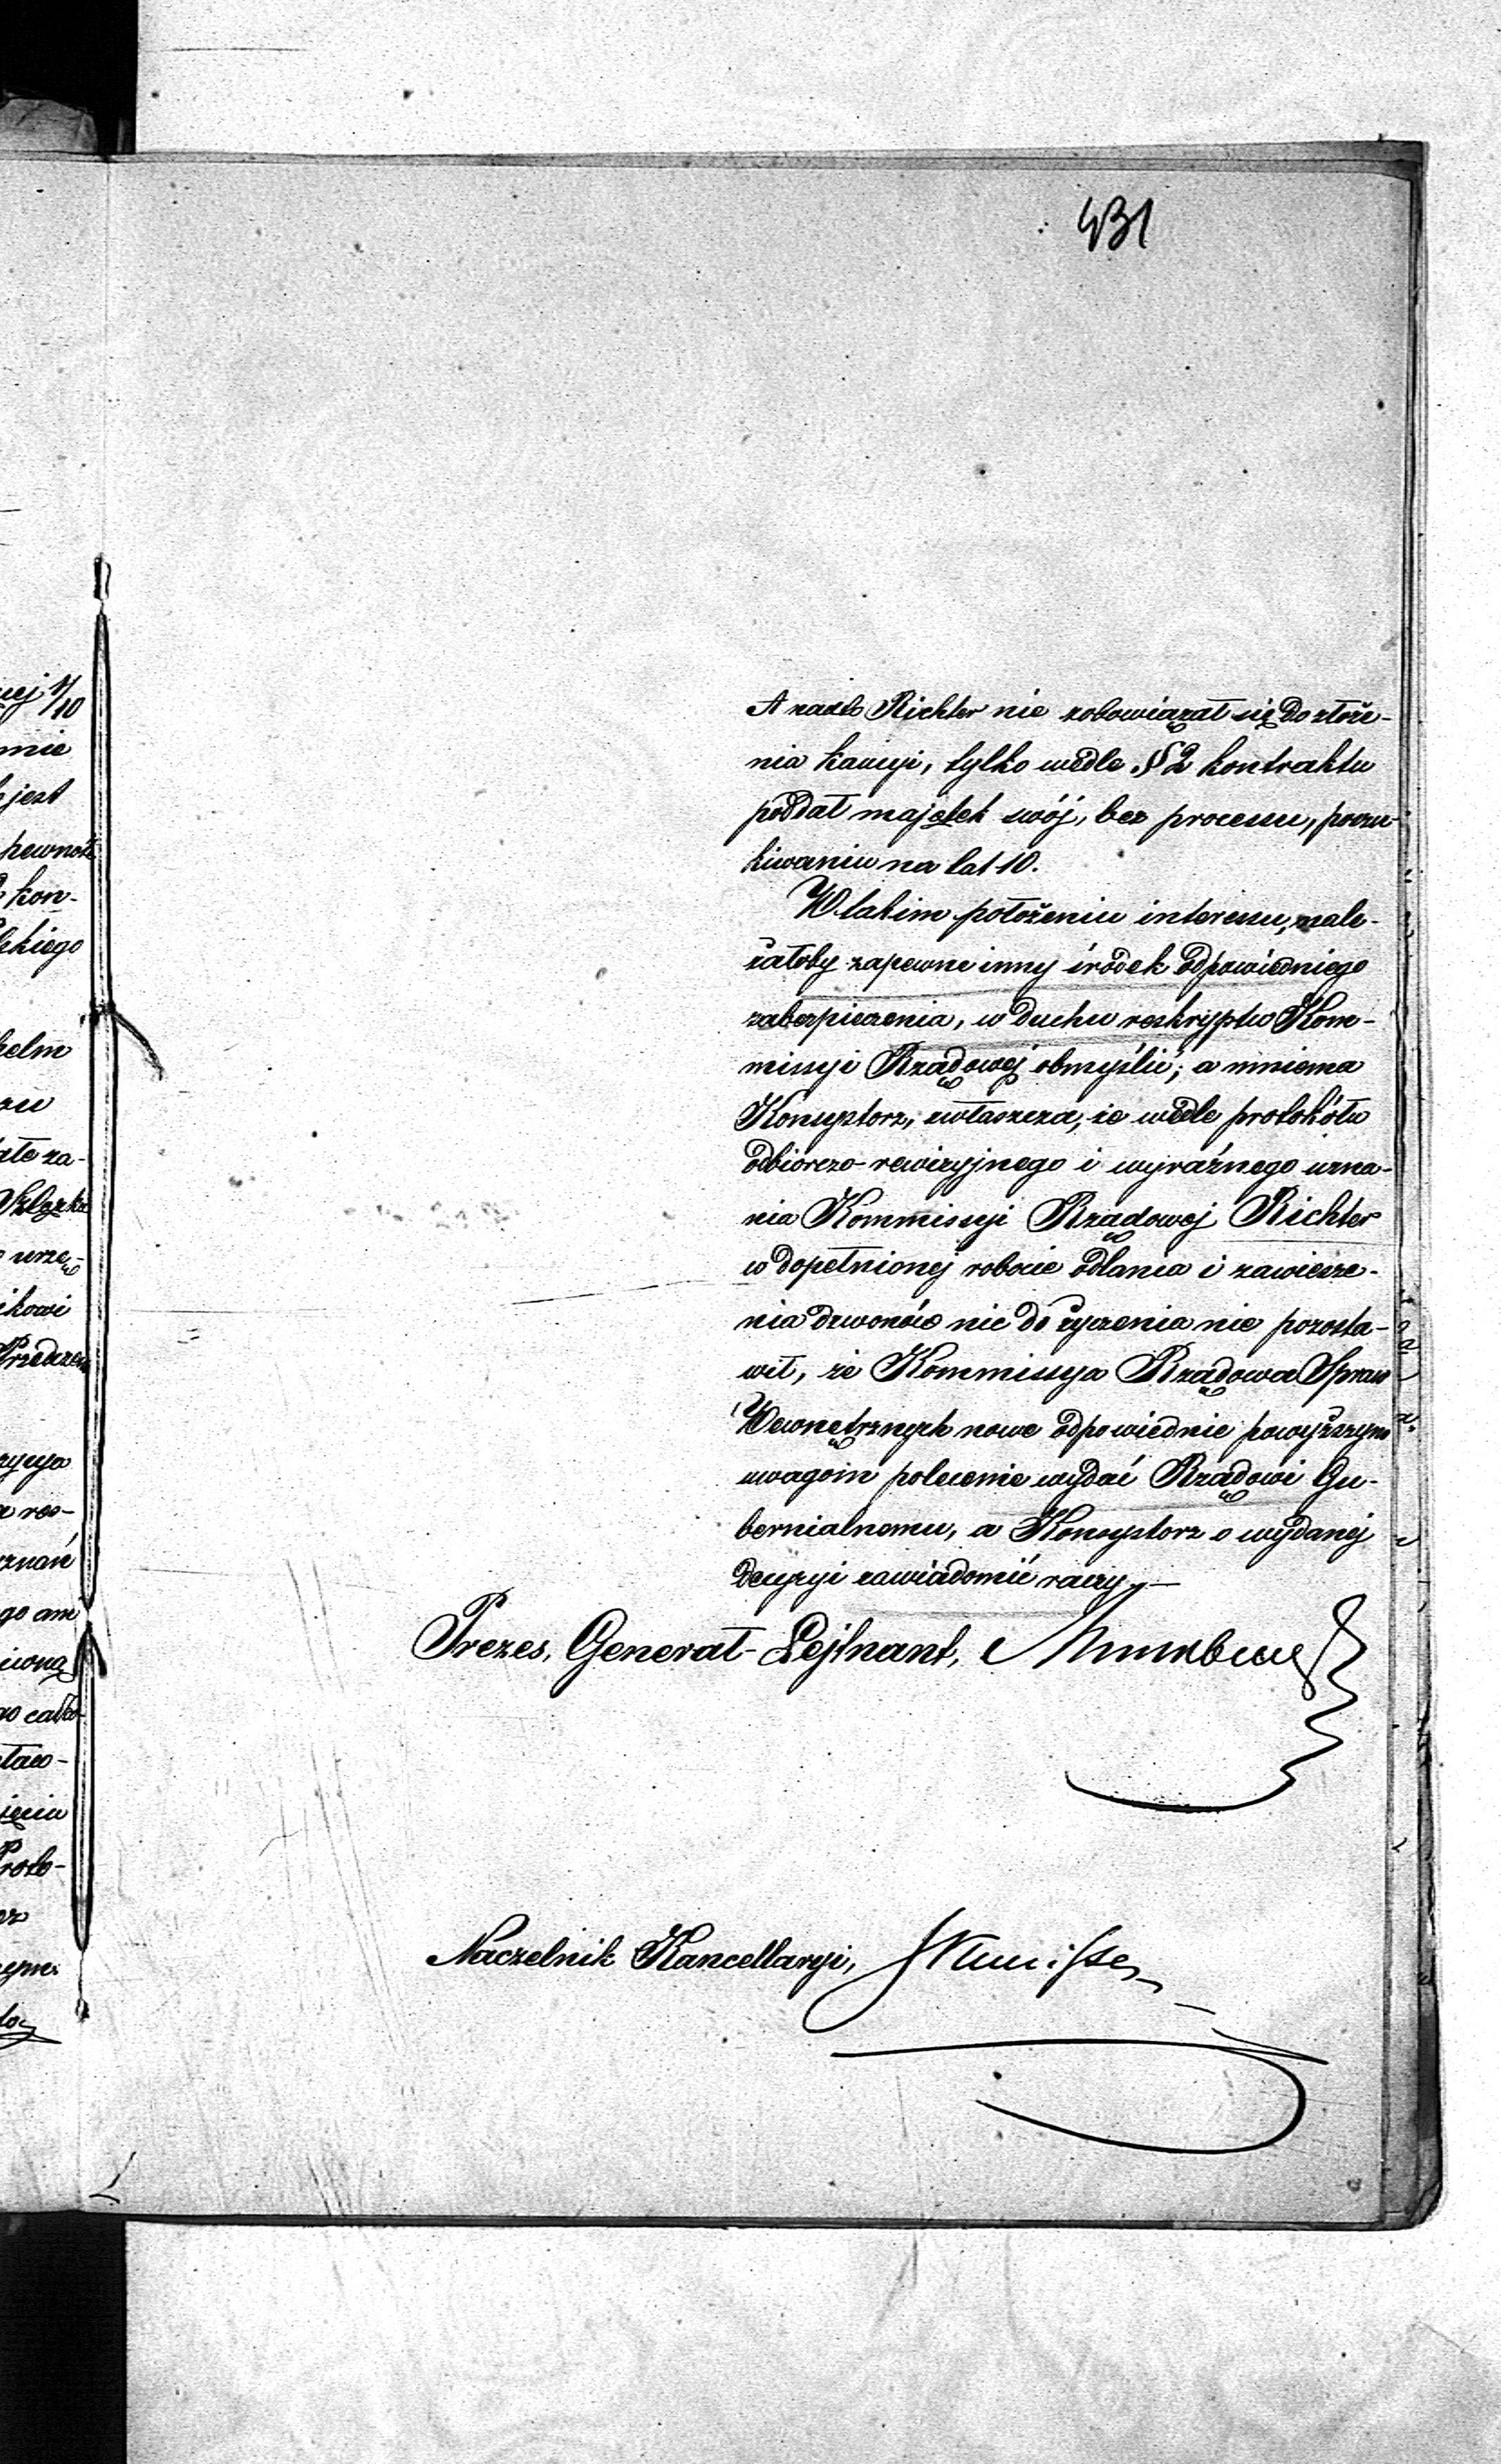 431
A nadto Richter nie zobowiązał się do złoże-
nia kaucyi, tylko wedle § 2 kontraktu
poddał majątek swój, bez processu, poszu-
kiwaniu na lat 10.
W takim położeniu interessu, nale-
żałoby zapewne inny środek odpowiedniego
zabezpieczenia, w duchu reskryptu Kom-
missyi Rządowej obmyślić; a mniema
Konsystorz, zwłaszcza, że wedle protokółu
odbiorczo-rewizyjnego i wyraźnego uzna-
nia Kommissyi Rządowej Richter
w dopełnionej robocie odlania i zawiesze-
nia dzwonów nic do życzenia nie pozosta-
wił, że Kommissya Rządowa Spraw
Wewnętrznych nowe odpowiednie powyższym
uwagom polecenie wydać Rządowi Gu-
bernialnemu, a Konsystorz o wydanej
decyzyi zawiadomić raczy.—
Prezes, Generał-Lejtnant,
Naczelnik Kancellaryi,